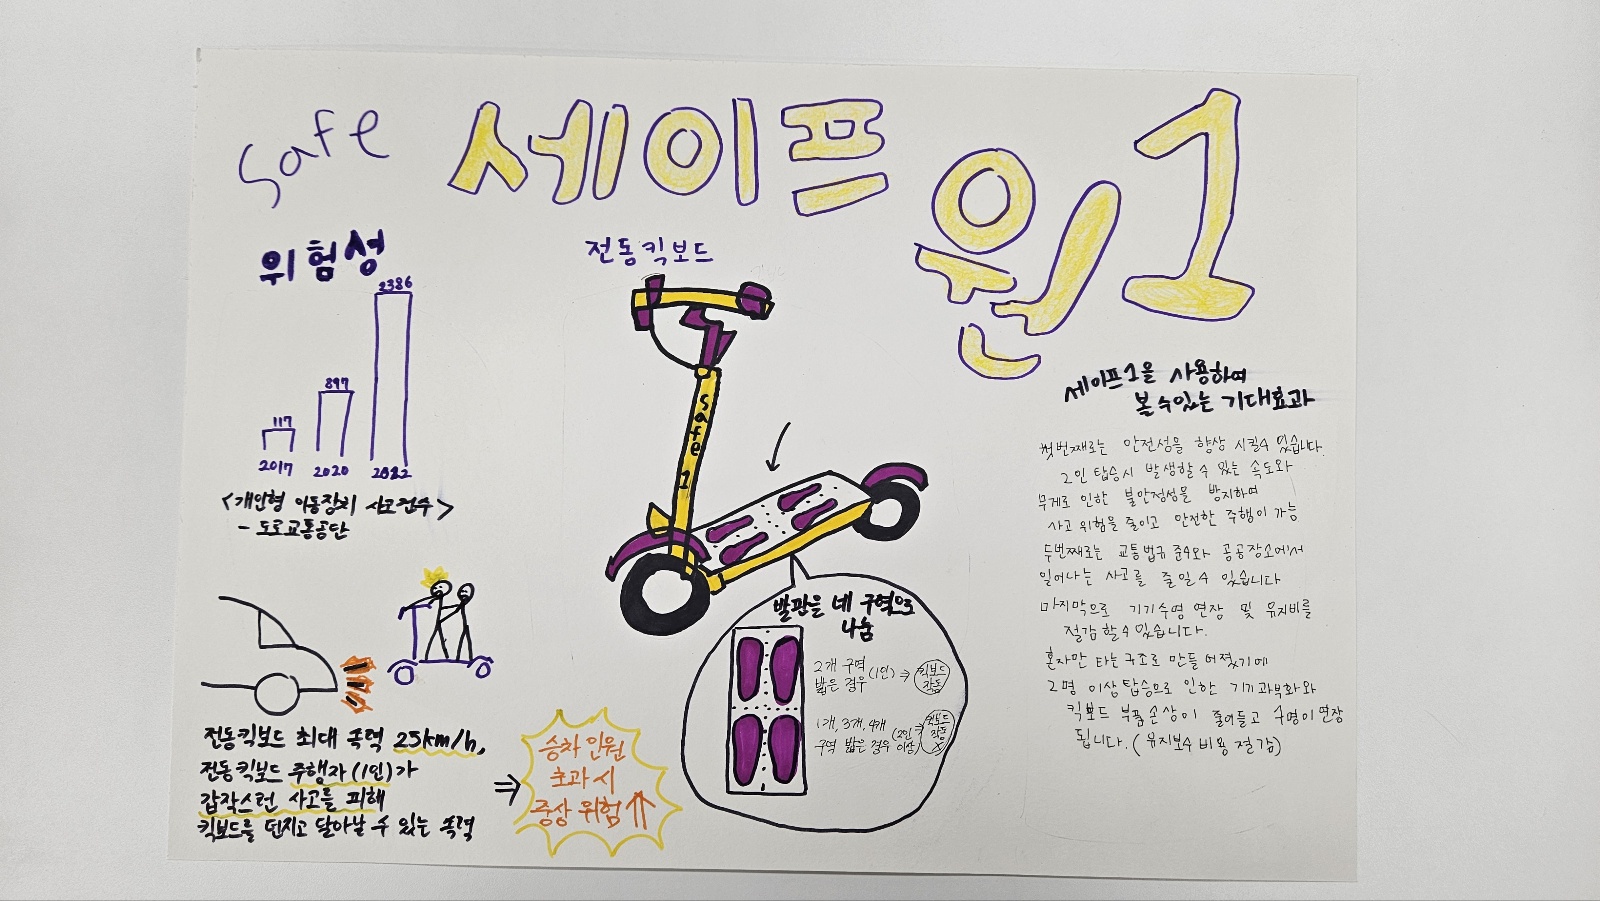 Safe
세이프
원1
위험성
2386
897
117
2017 2020 2022
<개인형 이동장치 사고건수>
- 도로교통공단
전동킥보드
safe 1
전동킥보드 최대 속력 25km/h,
전동킥보드 주행자(1인)가
갑작스런 사고를 피해
킥보드를 던지고 달아날 수 있는 속력
⇒
승차 인원
초과 시
중상 위험⇑
발판을 네 구역으로
나눔
2개 구역
밟은 경우 (1인) ⇒ 킥보드
작동
1개, 3개, 4개
구역 밟은 경우 (2인 이상) ⇒ 킥보드
작동
X
세이프1을 사용하여
볼 수 있는 기대효과
첫번째로는 안전성을 향상 시킬수 있습니다.
2인 탑승시 발생할 수 있는 속도와
무게로 인한 불안정성을 방지하여
사고 위험을 줄이고 안전한 주행이 가능
두번째로는 교통법규 준수와 공공장소에서
일어나는 사고를 줄일수 있습니다
마지막으로 기기수명 연장 및 유지비를
절감할수 있습니다.
혼자만 타는 구조로 만들어졌기에
2명 이상 탑승으로 인한 기기 과부화와
킥보드 부품손상이 줄어들고 수명이 연장
됩니다. (유지보수 비용 절감)